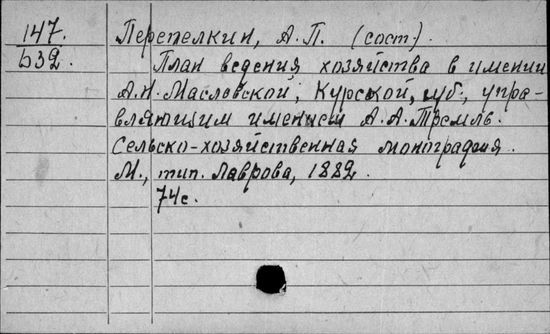 147. Перепелкин, А. П. (сост).
Б32. План ведения хозяйства в имении
А.Н. Масловской, Курской, губ., упра-
вляющим имением А. А. Тремль.
Сельско-хозяйственная монография.
М., тип. Лаврова, 1882.
74с.